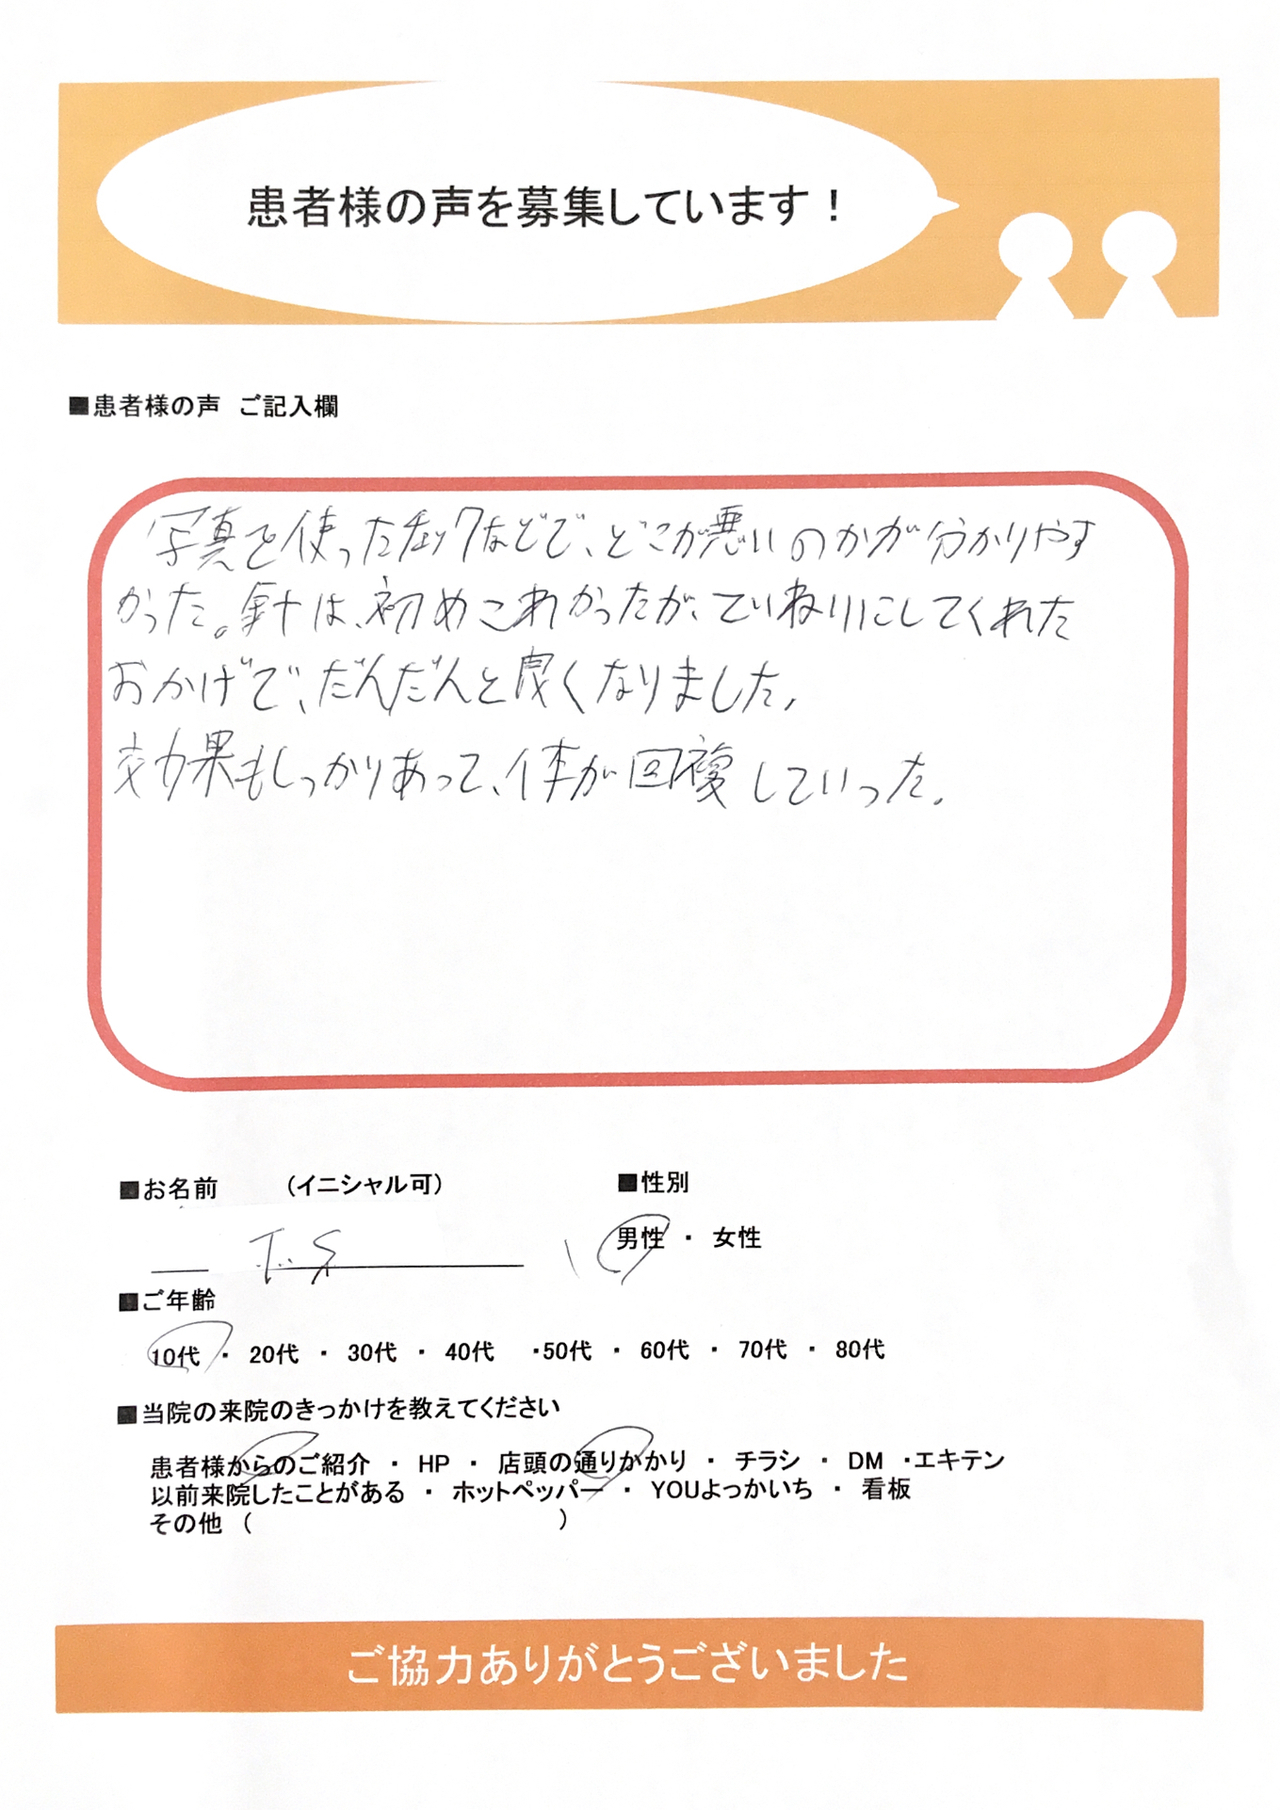 患者様の声を募集しています！
■患者様の声　ご記入欄
写真を使ったチェックなどで、どこが悪いのかが分かりやす
かった。針は、初めこわかったが、ていねいにしてくれた
おかげで、だんだんと良くなりました。
効果もしっかりあって、体が回複していった。
■お名前　（イニシャル可）　■性別
男性 ・ 女性
T.S
■ご年齢
10代 ・ 20代 ・ 30代 ・ 40代 ・50代 ・ 60代 ・ 70代 ・ 80代
■当院の来院のきっかけを教えてください
患者様からのご紹介 ・ HP ・ 店頭の通りかかり ・ チラシ ・ DM ・エキテン
以前来院したことがある ・ ホットペッパー ・ YOUよっかいち ・ 看板
その他 （　　　）
ご協力ありがとうございました